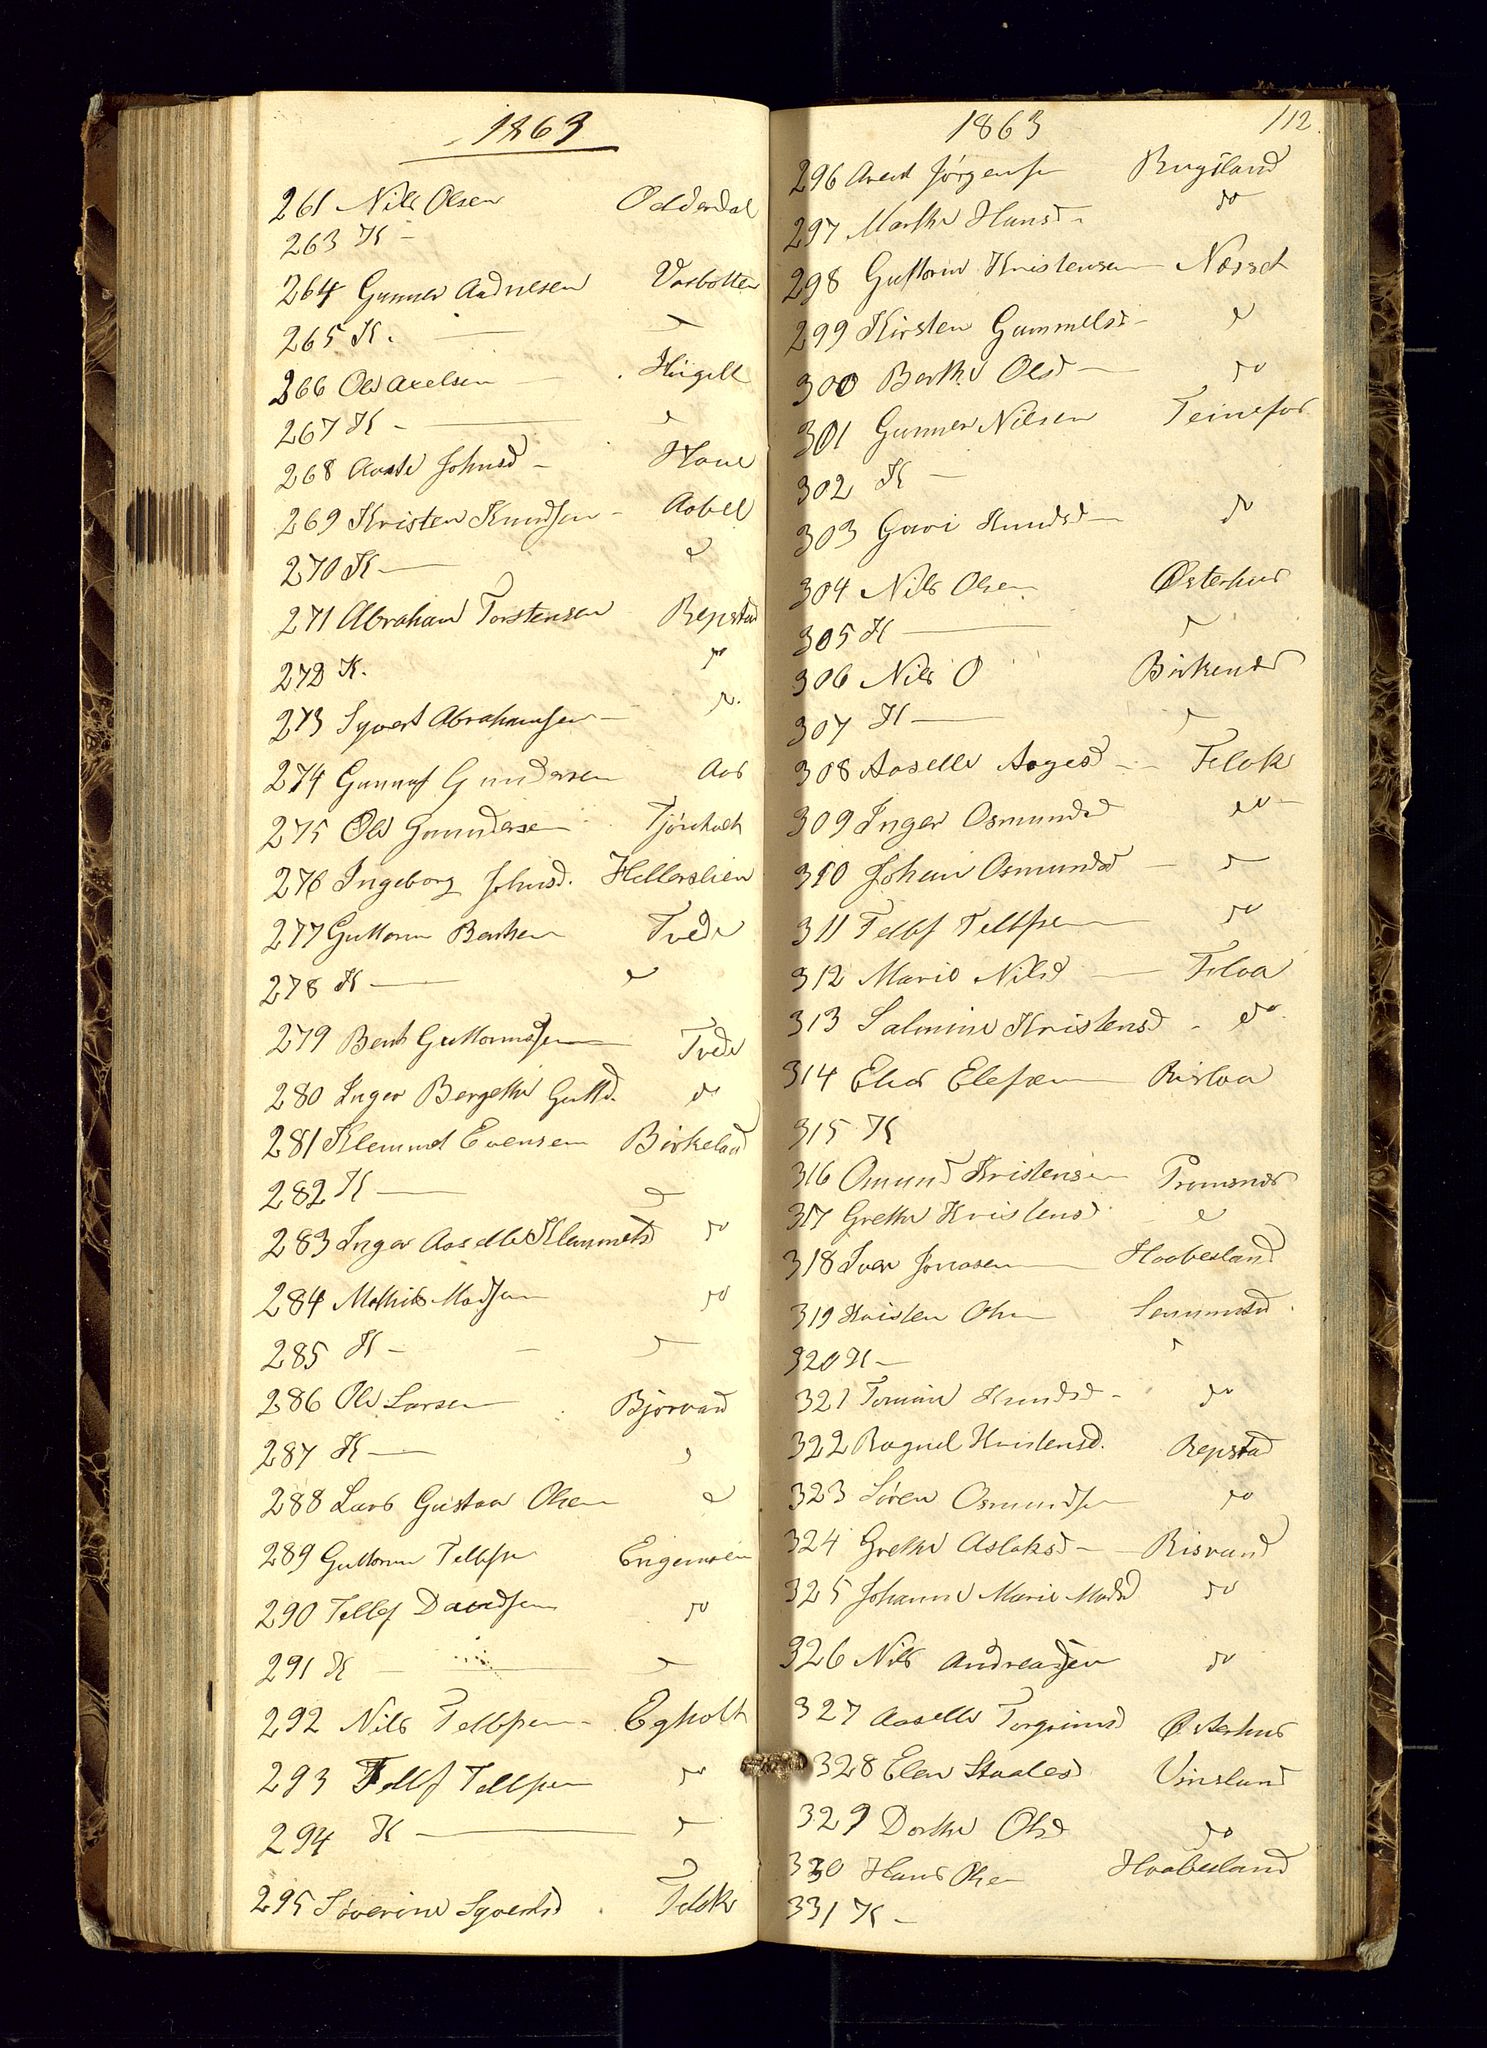 1863
261 Nils Olsen Odderdal
263 K -
264 Gunner Aadnesen Vasbotten
265 K. —
266 Ole Axelsen —
267 K - —
268 Aaste Johnsd - Hove
269 Kristen Knudsen - Aabel
270 K —
271 Abraham Torstensen Repstad
272 K. do
273 Syvert Abrahamsen - do
274 Gunnuf Gundersen Aas
275 Ole Gundersen
276 Ingeborg Johnsd. Hellerslien
277 Guttorm Bentsen Tvede
278 K —
279 Bent Guttormsen Tvede
280 Inger Bergethe Guttd. do
281 Klemmet Evensen Birkeland
282 K —
283 Inger Aaselle Klemmetsd do
284 Mathis Madsen do
285 K -
286 Ole Larsen Bjorvand
287 K —
288 Lars Gustav Olsen
289 Guttorm Tellefsen
290 Tellef Davidsen do
291 K —
292 Nils Tellefsen - Egholt
293 Tellef Tellefsen do
294 K —
295 Severine Syvertsd
1863 112.
296 Arent Jørgensen Bugsland
297 Marthe Hansd - do
298 Guttorm Kristensen Næsset
299 Kirsten Gammelsd -
300 Berthe Olsd - do
301 Gunner Nilsen Teinefos
302 K -
303 Guri Knudsd do
304 Nils Olsen Østerhus
305 K —
306 Nils O Birkenes
307 K —
308 Aaselle Aagesd -
309 Inger Osmundsd do
310 Johan Osmundsd -
311 Tellef Tellefsen do
312 Marie Nilsd —
313 Salmine Kristensd - do
314 Elias Elefsen
315 K
316 Omund Kristensen
317 Grethe Kristensd
318 Iver Jonasen Haabesland
319 Kristen Olsen
320 K -
321 Tomine Knudsd - do
322 Ragnel Kristensd. Repstad
323 Søren Osmundsen do
324 Grethe Aslaksd - Risvand
325 Johanne Marie Madsd do
326 Nils Andreassen do
327 Aaselle Torgrimsd Østerhus
328 Elen Staalesd Vinsland
329 Dorthe Olsd do
330 Hans Olsen Haabesland
331 K -